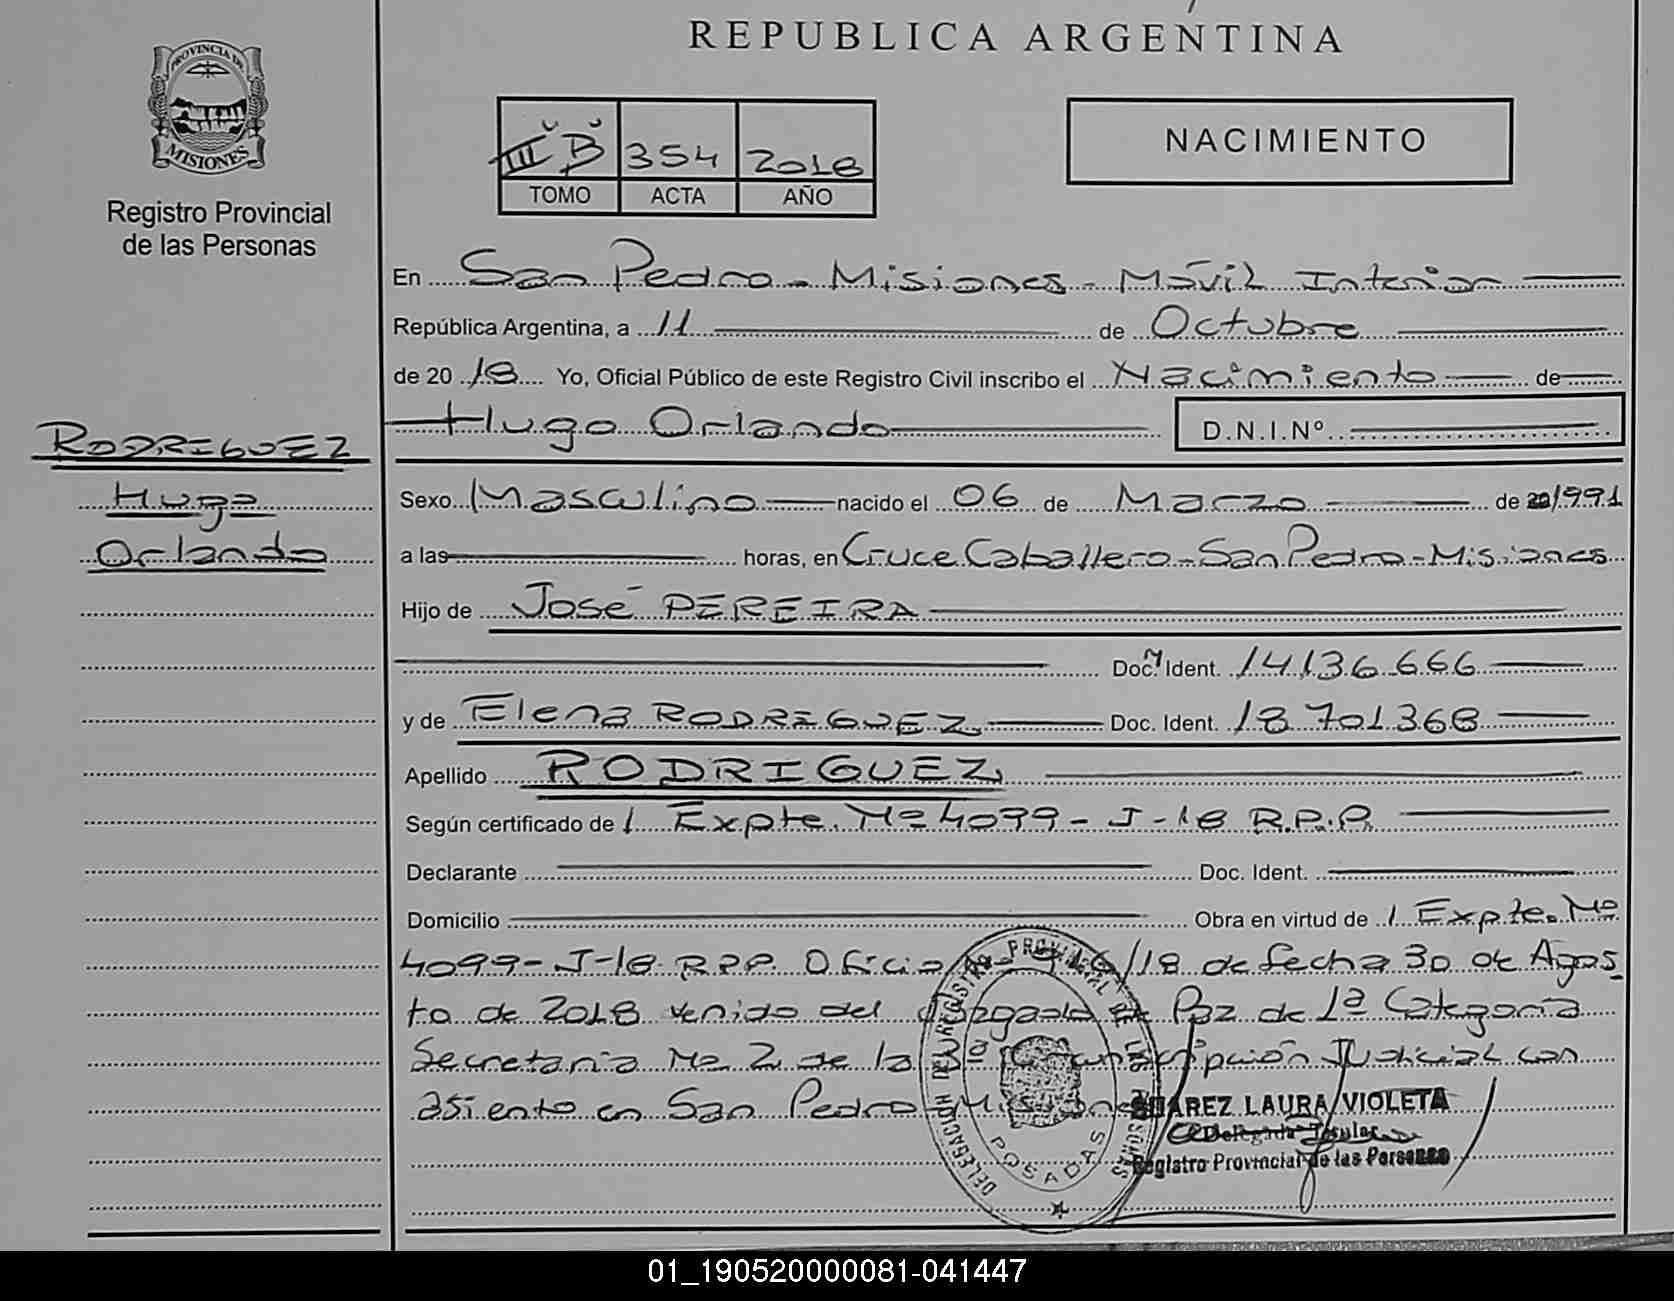 REPUBLICA ARGENTINA
PROVINCIA DE
MISIONES
Registro Provincial
de las Personas
III B 354 2018
TOMO ACTA AÑO
NACIMIENTO
En San Pedro - Misiones - Móvil Interior
República Argentina, a 11 de Octubre
de 20 18 Yo, Oficial Público de este Registro Civil inscribo el Nacimiento de
Hugo Orlando D.N.I.Nº
RODRIGUEZ
Hugo
Orlando
Sexo Masculino nacido el 06 de Marzo de 1991
a las horas, en Cruce Caballero - San Pedro - Misiones
Hijo de José PEREIRA
Doc. Ident. 14.136.666
y de Elena RODRIGUEZ Doc. Ident. 18.701.368
Apellido RODRIGUEZ
Según certificado de 1 Expte. Nº 4099 - J - 18 R.P.P.
Declarante Doc. Ident.
Domicilio Obra en virtud de 1 Expte. Nº
4099 - J - 18 R.P.P. Oficio /18 de fecha 30 de Agos
to de 2018 venido del Juzgado de Paz de 1ª Categoría
Secretaria Nº 2 de la Circunscripción Judicial con
asiento en San Pedro - Misiones
DELEGACION DEL REGISTRO PROVINCIAL DE LAS PERSONAS
POSADAS
SUAREZ LAURA VIOLETA
Delegada Titular
Registro Provincial de las Personas
01_190520000081-041447